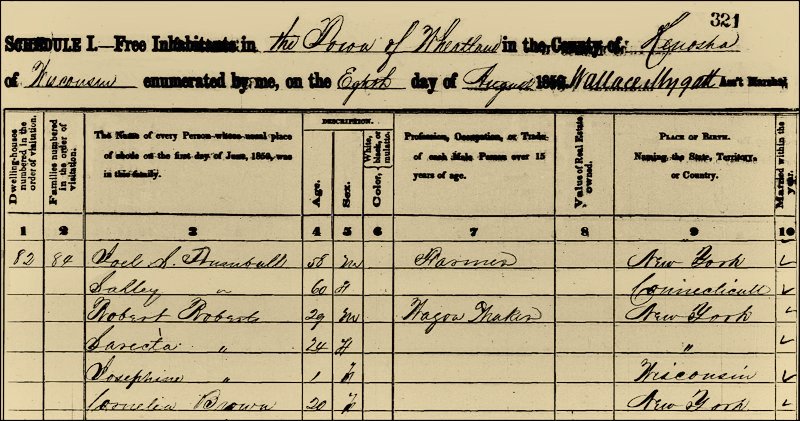 321
SCHEDULE I.—Free Inhabitants in the Town of Wheatland in the County of Kenosha
of Wisconsin enumerated by me, on the Eghth day of August 1850. Wallace Mygatt Ass't Marshal
Dwelling-houses numbered in the order of visitation.
Families numbered in the order of visitation.
The Name of every Person whose usual place of abode on the first day of June, 1850, was in this family.
DESCRIPTION.
Age.
Sex.
Color, White, black, or mulatto.
Profession, Occupation, or Trade of each Male Person over 15 years of age.
Value of Real Estate owned.
PLACE OF BIRTH. Naming the State, Territory, or Country.
Married within the year.
1 2 3 4 5 6 7 8 9 10
82 84 Joel S. 58 m Farmer New York ✓
Salley " 60 F Connecticutt ✓
Robert Roberts 29 m Wagon Maker New York ✓
Sarecta " 24 F " ✓
Josephine " 1 F Wisconsin ✓
Cornelia Brown 20 F New York ✓